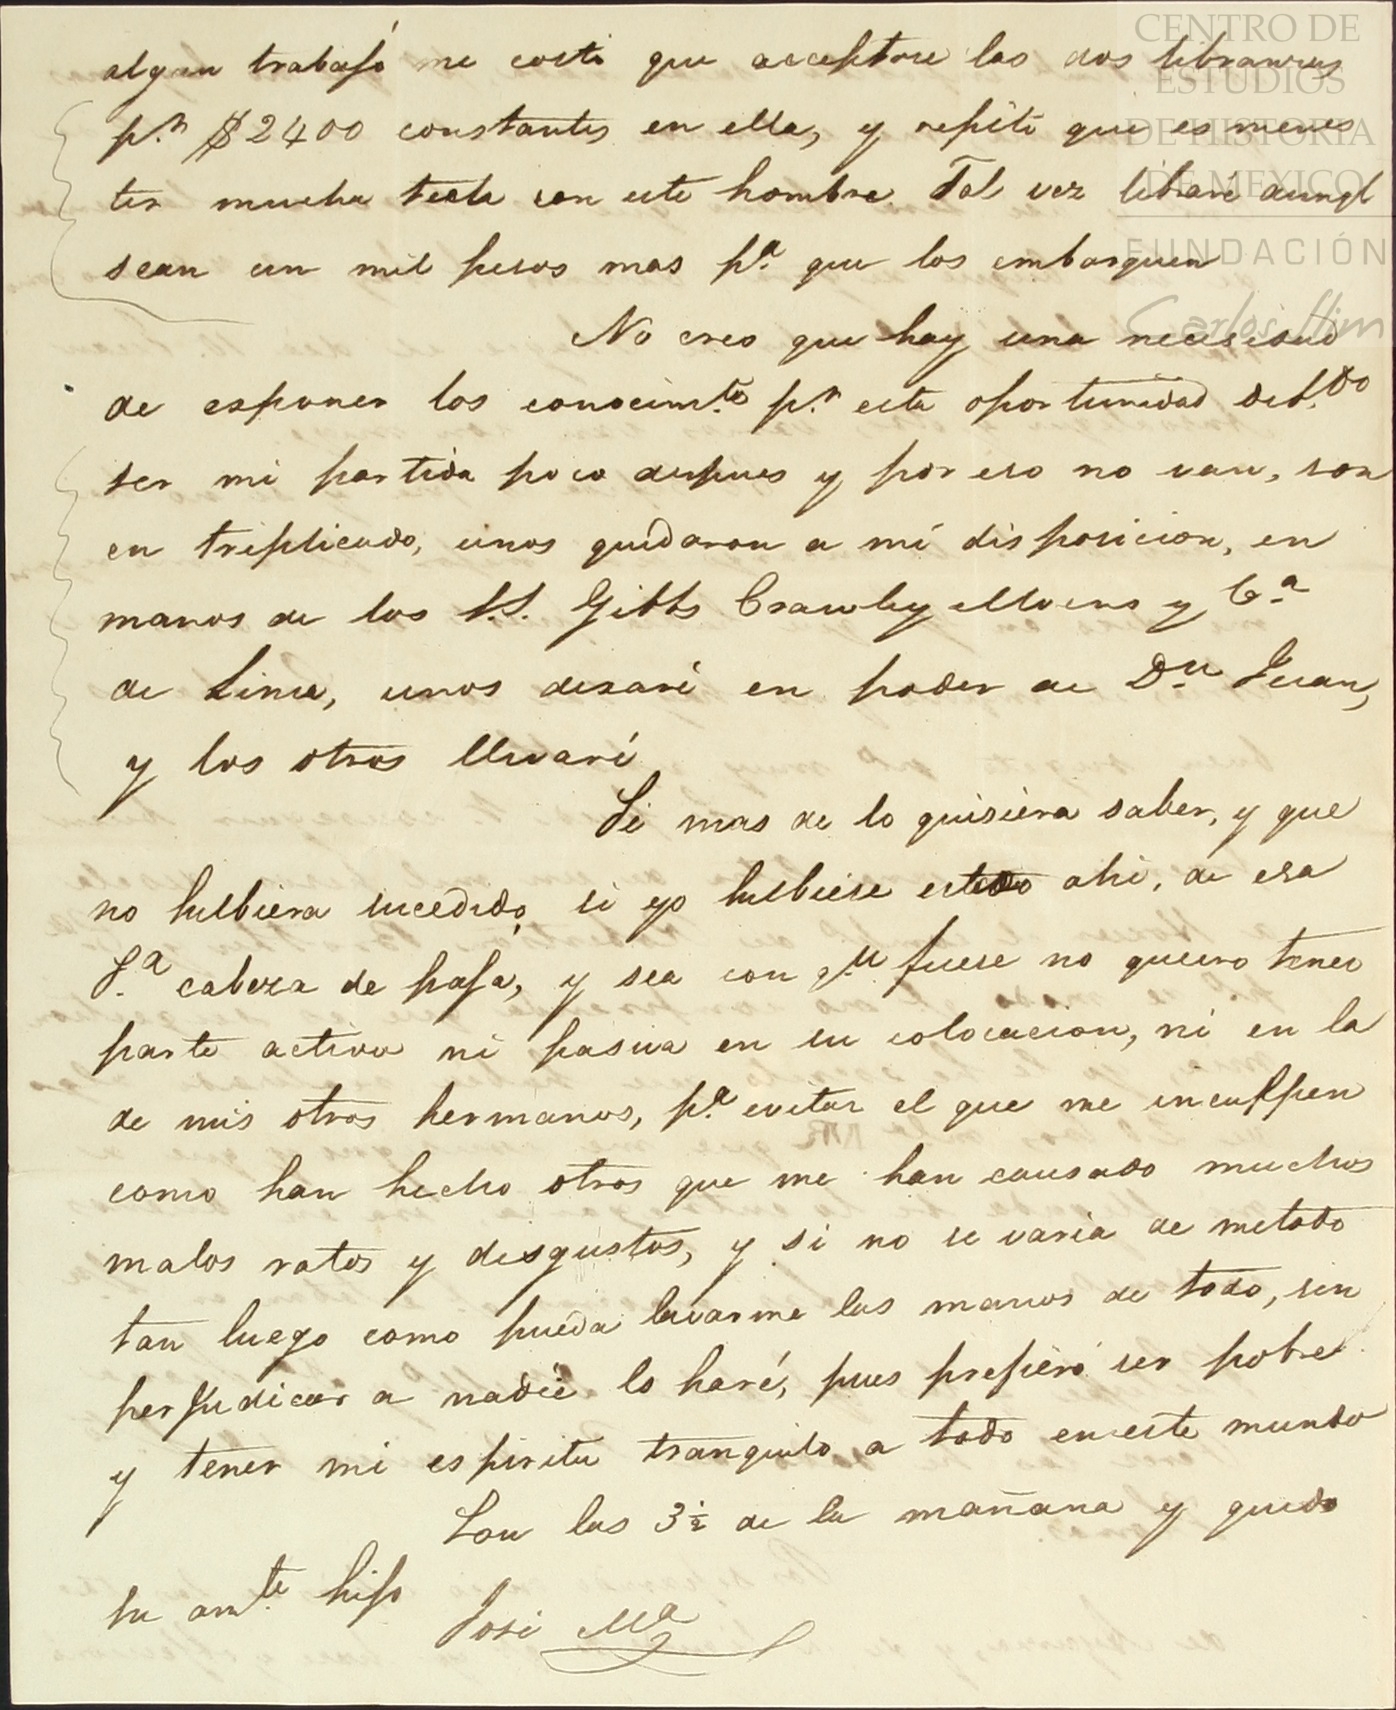 CENTRO DE
ESTUDIOS
DE HISTORIA
DE MEXICO
FUNDACIÓN
Carlos Slim
algun trabajó me costó que acceptase las dos libranzas
pr. $2400 constantes en ella, y repito que es menes
ter mucha tecla con este hombre Tal vez libraré aunqe
sean un mil pesos mas pa. que los embarquen
No creo que hay una necesidad
de esponer los conocimtos pr. esta oportunidad debdo
ser mi partida poco despues y por eso no van, son
en triplicado, unos quedaron a mi disposicion, en
manos de los S.S. Gibbs Crawley Moens y Ca
de Lima, unos dexaré en poder de Dn Juan,
y los otros llevaré
Sé mas de lo quisiera saber, y que
no hubiera sucedido, si yo hubiese estado ahi, de esa
Sa cabeza de paja, y sea con qn fuese no quiero tener
parte activa ni pasiva en su colocacion, ni en la
de mis otros hermanos, pa evitar el que me inculpen
como han hecho otros que me han causado muchos
malos ratos y disgustos, y si no se varia de metodo
tan luego como pueda lavarme las manos de todo, sin
perjudicar a nadie lo haré, pues prefiero ser pobre
y tener mi espiritu tranquilo a todo en este mundo
Son las 3½ de la mañana y quedo
su amte hijo
José Ma